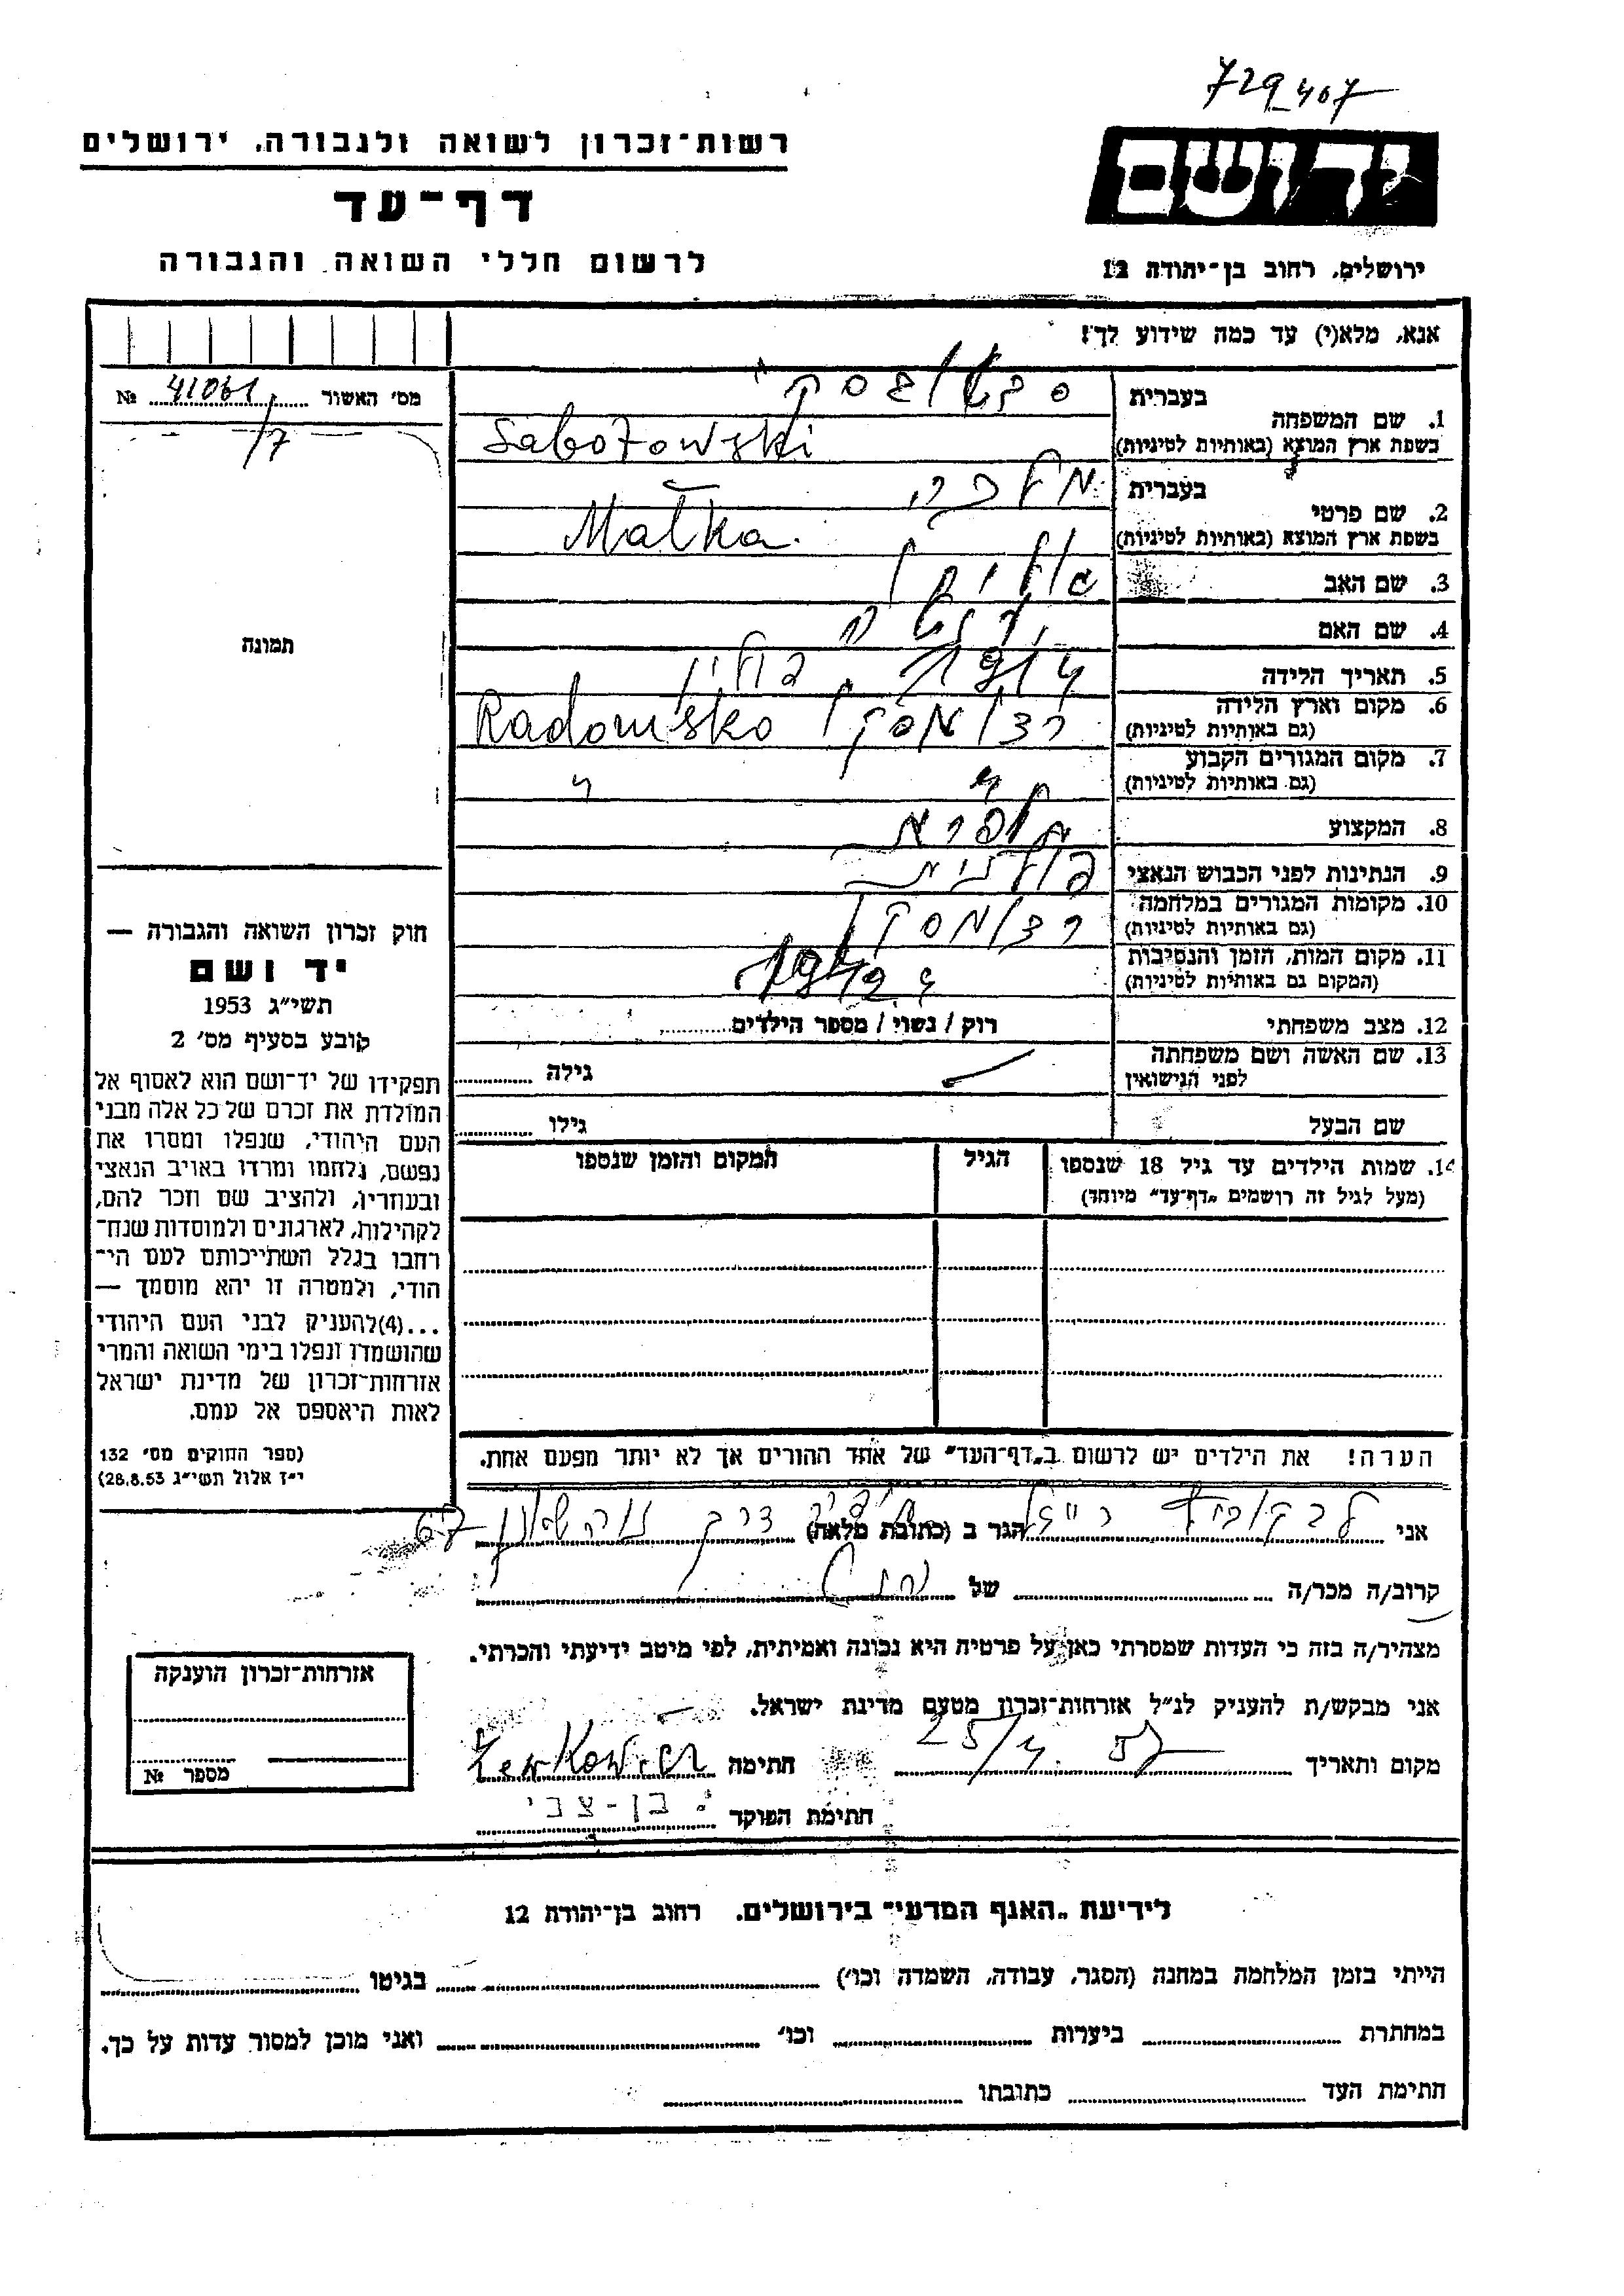 729407
רשות־זכרון לשואה ולגבורה, ירושלים
יד ושם
דף־עד
לרשום חללי השואה והגבורה
ירושלים, רחוב בן־יהודה 12
אנא, מלא(י) עד כמה שידוע לך!
מס' האשור 41061 №
/7
1. שם המשפחה
בעברית
בשפת ארץ המוצא (באותיות לטיניות) Sabotowski
2. שם פרטי
בעברית מלכה
בשפת ארץ המוצא (באותיות לטיניות) Małka.
3. שם האב
4. שם האם
5. תאריך הלידה 1914, פולין
6. מקום וארץ הלידה
(גם באותיות לטיניות) רדומסקו Radomsko
7. מקום המגורים הקבוע
(גם באותיות לטיניות) " "
8. המקצוע
9. הנתינות לפני הכבוש הנאצי פולנית
10. מקומות המגורים במלחמה
(גם באותיות לטיניות) רדומסקו
11. מקום המות, הזמן והנסיבות
(המקום גם באותיות לטיניות) 1942
12. מצב משפחתי רוק / נשוי / מספר הילדים
13. שם האשה ושם משפחתה
לפני הנישואין גילה
שם הבעל גילו
14. שמות הילדים עד גיל 18 שנספו
(מעל לגיל זה רושמים "דף־עד" מיוחד)
הגיל
המקום והזמן שנספו
תמונה
חוק זכרון השואה והגבורה —
יד ושם
תשי"ג 1953
קובע בסעיף מס' 2
תפקידו של יד־ושם הוא לאסוף אל
המולדת את זכרם של כל אלה מבני
העם היהודי, שנפלו ומסרו את
נפשם, נלחמו ומרדו באויב הנאצי
ובעוזריו, ולהציב שם וזכר להם,
לקהילות, לארגונים ולמוסדות שנח־
רחבו בגלל השתייכותם לעם הי־
הודי, ולמטרה זו יהא מוסמך —
...(4)להעניק לבני העם היהודי
שהושמדו ונפלו בימי השואה והמרי
אזרחות־זכרון של מדינת ישראל
לאות היאספם אל עמם.
(ספר החוקים מס' 132
י"ז אלול תשי"ג 28.8.53)
הערה! את הילדים יש לרשום ב"דף־העד" של אחד ההורים אך לא יותר מפעם אחת.
אני הגר ב (כתובת מלאה) דרך 67
קרוב/ה מכר/ה של
מצהיר/ה בזה כי העדות שמסרתי כאן על פרטיה היא נכונה ואמיתית, לפי מיטב ידיעתי והכרתי.
אני מבקש/ת להעניק לנ"ל אזרחות־זכרון מטעם מדינת ישראל.
מקום ותאריך 25/4. 57 חתימה
חתימת הפוקד בן-צבי
אזרחות־זכרון הוענקה
מספר №
לידיעת "האגף המדעי" בירושלים, רחוב בן־יהודה 12
הייתי בזמן המלחמה במחנה (הסגר, עבודה, השמדה וכו') בגיטו
במחתרת ביערות וכו' ואני מוכן למסור עדות על כך.
חתימת העד כתובתו